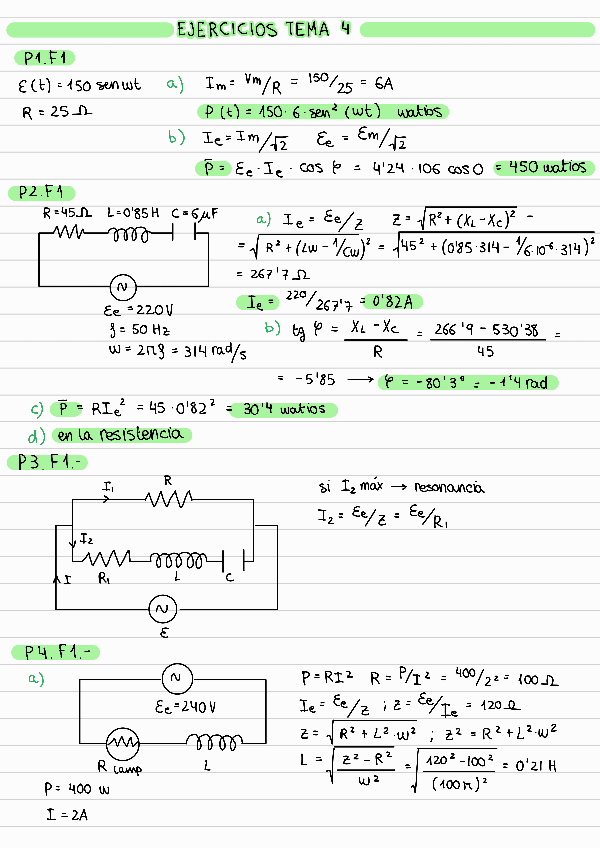 EJERCICIOS TEMA 4
P1.F1
ε(t) = 150 sen wt a) Im = Vm/R = 150/25 = 6A
R = 25 Ω P(t) = 150 · 6 · sen² (wt) watios
b) Ie = Im/√2 Ee = Em/√2
P̄ = Ee · Ie · cos φ = 4'24 · 106 cos 0 = 450 watios
P2.F1
R = 45 Ω L = 0'85 H C = 6 μF
a) Ie = Ee/Z Z = √(R² + (XL - XC)²) =
= √(R² + (Lw - 1/Cw)²) = √(45² + (0'85 · 314 - 1/6·10⁻⁶·314)²
= 267'7 Ω
Ee = 220 V
f = 50 Hz
w = 2πf = 314 rad/s
Ie = 220/267'7 = 0'82A
b) tg φ = XL - XC / R = 266'9 - 530'38 / 45 =
= -5'85 → φ = -80'3° = -1'4 rad
c) P̄ = RIe² = 45 · 0'82² = 30'4 watios
d) en la resistencia
P3.F1.-
I1 R
I2
I R1 L C
ε
si I2 máx → resonancia
I2 = Ee/Z = Ee/R1
P4.F1.-
a)
Ee = 240 V
R lamp L
P = 400 w
I = 2A
P = RI² R = P/I² = 400/2² = 100 Ω
Ie = Ee/Z ; Z = Ee/Ie = 120 Ω
Z = √(R² + L² · w²) ; Z² = R² + L² · w²
L = √(Z² - R² / w²) = √(120² - 100² / (100π)²) = 0'21 H